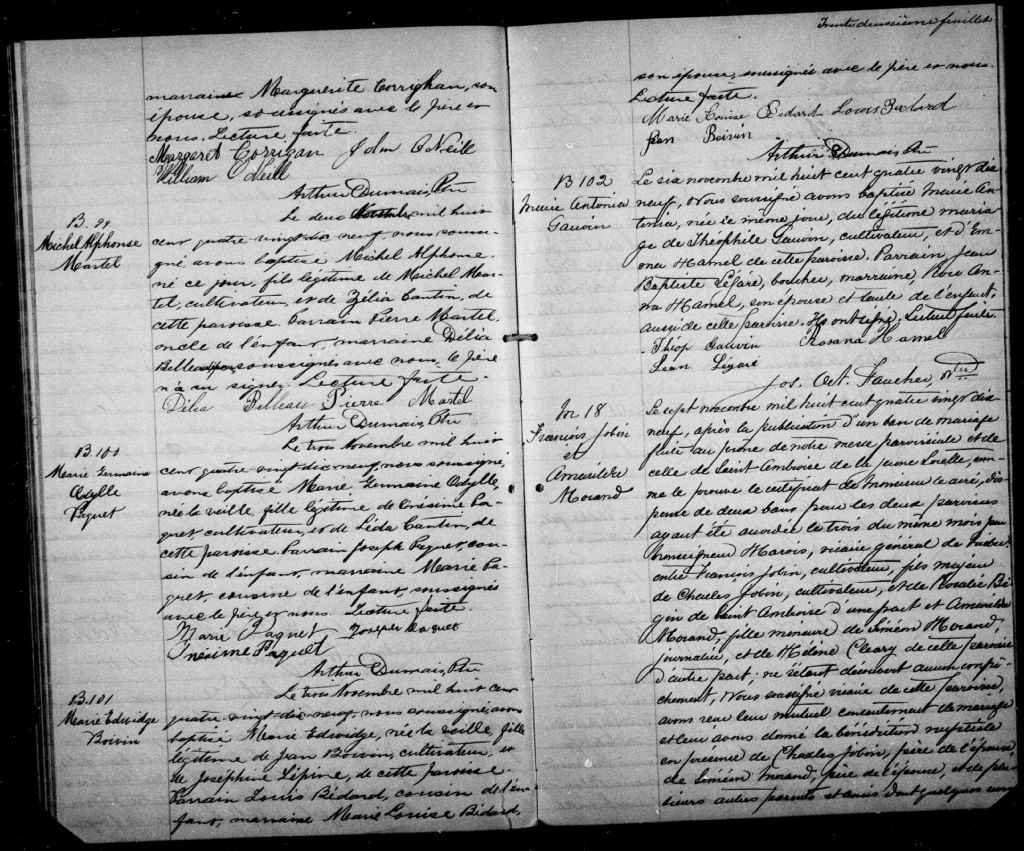 marraine Marguerite Corrighan, son
épouse, soussignés avec le père et
nous. Lecture faite.
Margaret Corrigan John O'Neill
William O'Neill
Arthur Dumais, Ptre
B. 99
Michel Alphonse
Martel
Le deux Novembre, mil huit
cent quatre vingt dix neuf, nous soussi-
gné avons baptisé Michel Alphonse,
né ce jour, fils légitime de Michel Mar-
tel, cultivateur, et de Zélia Cantin, de
cette paroisse. Parrain Pierre Martel,
oncle de l'enfant, marraine Délia
Belleau soussignés avec nous, le père
n'a su signer. Lecture faite.
Délia Belleau Pierre Martel
Arthur Dumais, Ptre
B. 100
Marie Germaine
Odylle
Paquet
Le trois Novembre mil huit
cent quatre vingt dix neuf, nous soussigné,
avons baptisé Marie Germaine Odylle,
née la veille, fille légitime de Onésime Pa-
quet cultivateur, et de Léda Cantin, de
cette paroisse. Parrain Joseph Paquet, cou-
sin de l'enfant, marraine Marie Pa-
quet, cousine de l'enfant, soussignés
avec le père et nous. Lecture faite.
Marie Paquet Joseph Paquet
Onésime Paquet
Arthur Dumais, Ptre
B. 101
Marie Edwidge
Boivin
Le trois Novembre mil huit cent
quatre vingt dix neuf, nous soussigné, avons
baptisé Marie Edwidge, née la veille, fille
légitime de Jean Boivin, cultivateur, et
de Joséphine Lépine, de cette paroisse.
Parrain Louis Bédard, cousin de l'en-
fant, marraine Marie Louise Bédard,
Trente deuxième feuillet
son épouse, soussignés avec le père et nous.
Lecture faite.
Marie Louise Bedard Louis Bedard
Jean Boivin
Arthur Dumais, Ptre
B 102
Marie Antonia
Gauvin
Le six novembre mil huit cent quatre vingt dix
neuf, Nous soussigné avons baptisé Marie An-
tonia, née le même jour, du légitime maria-
ge de Théophile Gauvin, cultivateur, et d'Em-
ma Hamel de cette paroisse. Parrain, Jean
Baptiste Légaré, boucher, marraine, Rose An-
na Hamel, son épouse et tante de l'enfant,
aussi de cette paroisse. Ils ont signé. Lecture faite.
Théop Gauvin Rosana Hamel
Jean Légaré
Jos. Oct. Faucher, Ptre
M 18
François Jobin
et
Amarilda
Morand
Le sept novembre mil huit cent quatre vingt dix
neuf, après la publication d'un ban de mariage
faite au prone de notre messe paroissiale et de
celle de Saint Ambroise de la jeune Lorette, com-
me le prouve le certificat de monsieur le curé, dis-
pense de deux bans pour les deux paroisses
ayant été accordée le trois du même mois par
Monseigneur Marois, vicaire général de Québec,
entre François Jobin, cultivateur, fils majeur
de Charles Jobin, cultivateur, et de Rosalie Bé-
gin de Saint Ambroise d'une part et Amarilda
Morand, fille mineure de Siméon Morand,
journalier, et de Hélène Cleary de cette paroisse
d'autre part; ne s'étant découvert aucun empê-
chement, Nous soussigné vicaire de cette paroisse,
avons reçu leur mutuel consentement de mariage
et leur avons donné la bénédiction nuptiale
en présence de Charles Jobin, père de l'époux,
de Siméon Morand, père de l'épouse, et de plu-
sieurs autres parents et amis dont quelques uns